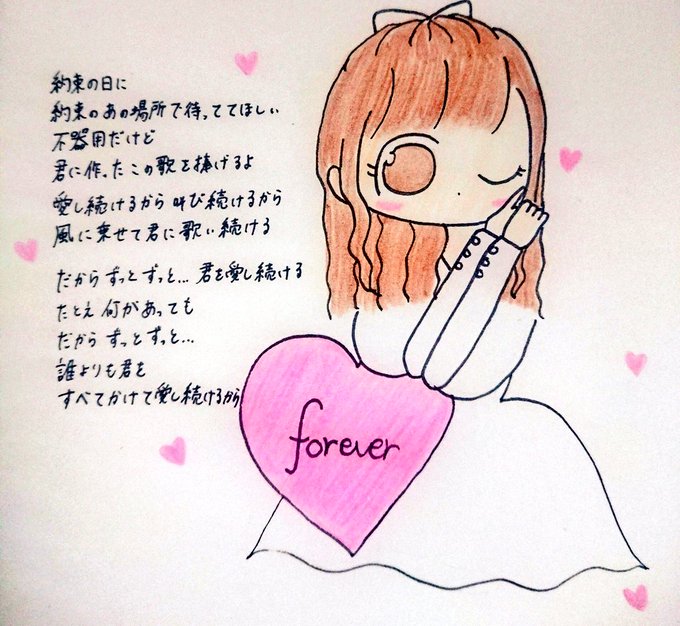 約束の日に
約束のあの場所で待っててほしい
不器用だけど
君に作った この歌を捧げるよ
愛し続けるから 叫び続けるから
風に乗せて君に歌い続ける
だから ずっと ずっと... 君を愛し続ける
たとえ 何があっても
だから ずっと ずっと...
誰よりも君を
すべてかけて愛し続けるから
forever